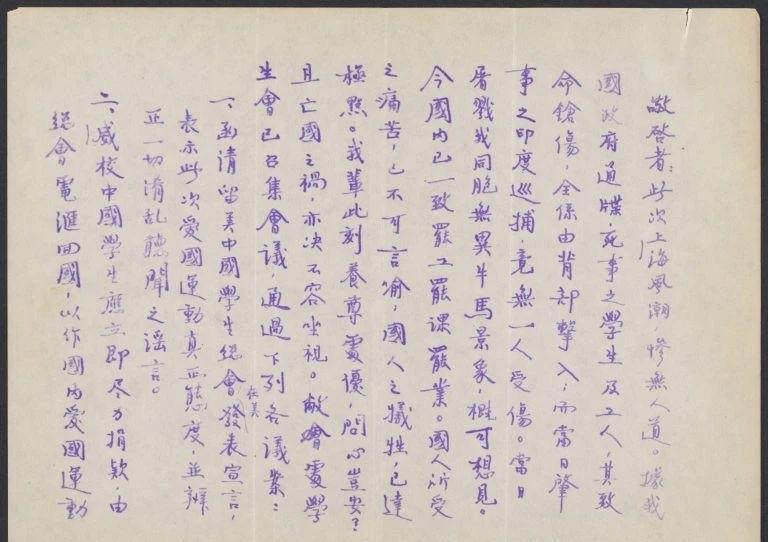 敬啓者:此次上海風潮,慘無人道。據我
國政府通牒,死事之學生及工人,其致
命鎗傷,全係由背部擊入;而當日肇
事之印度巡捕,竟無一人受傷。當日
屠戮我同胞無異牛馬景象,概可想見。
今國內已一致罷工罷課罷業。國人所受
之痛苦,已不可言喻,國人之犧牲,已達
極點。我輩此刻養尊處優,問心豈安?
且亡國之禍,亦决不容坐視。敝會處學
生會已召集會議,通過下列各議案:
一、函請留美中國學生總會在美發表宣言,
表示此次愛國運動真正態度,並辯
正一切淆乱聽聞之謠言。
二、咸校中國學生應立即尽力捐欵,由
總會電滙回國,以作國內愛國運動